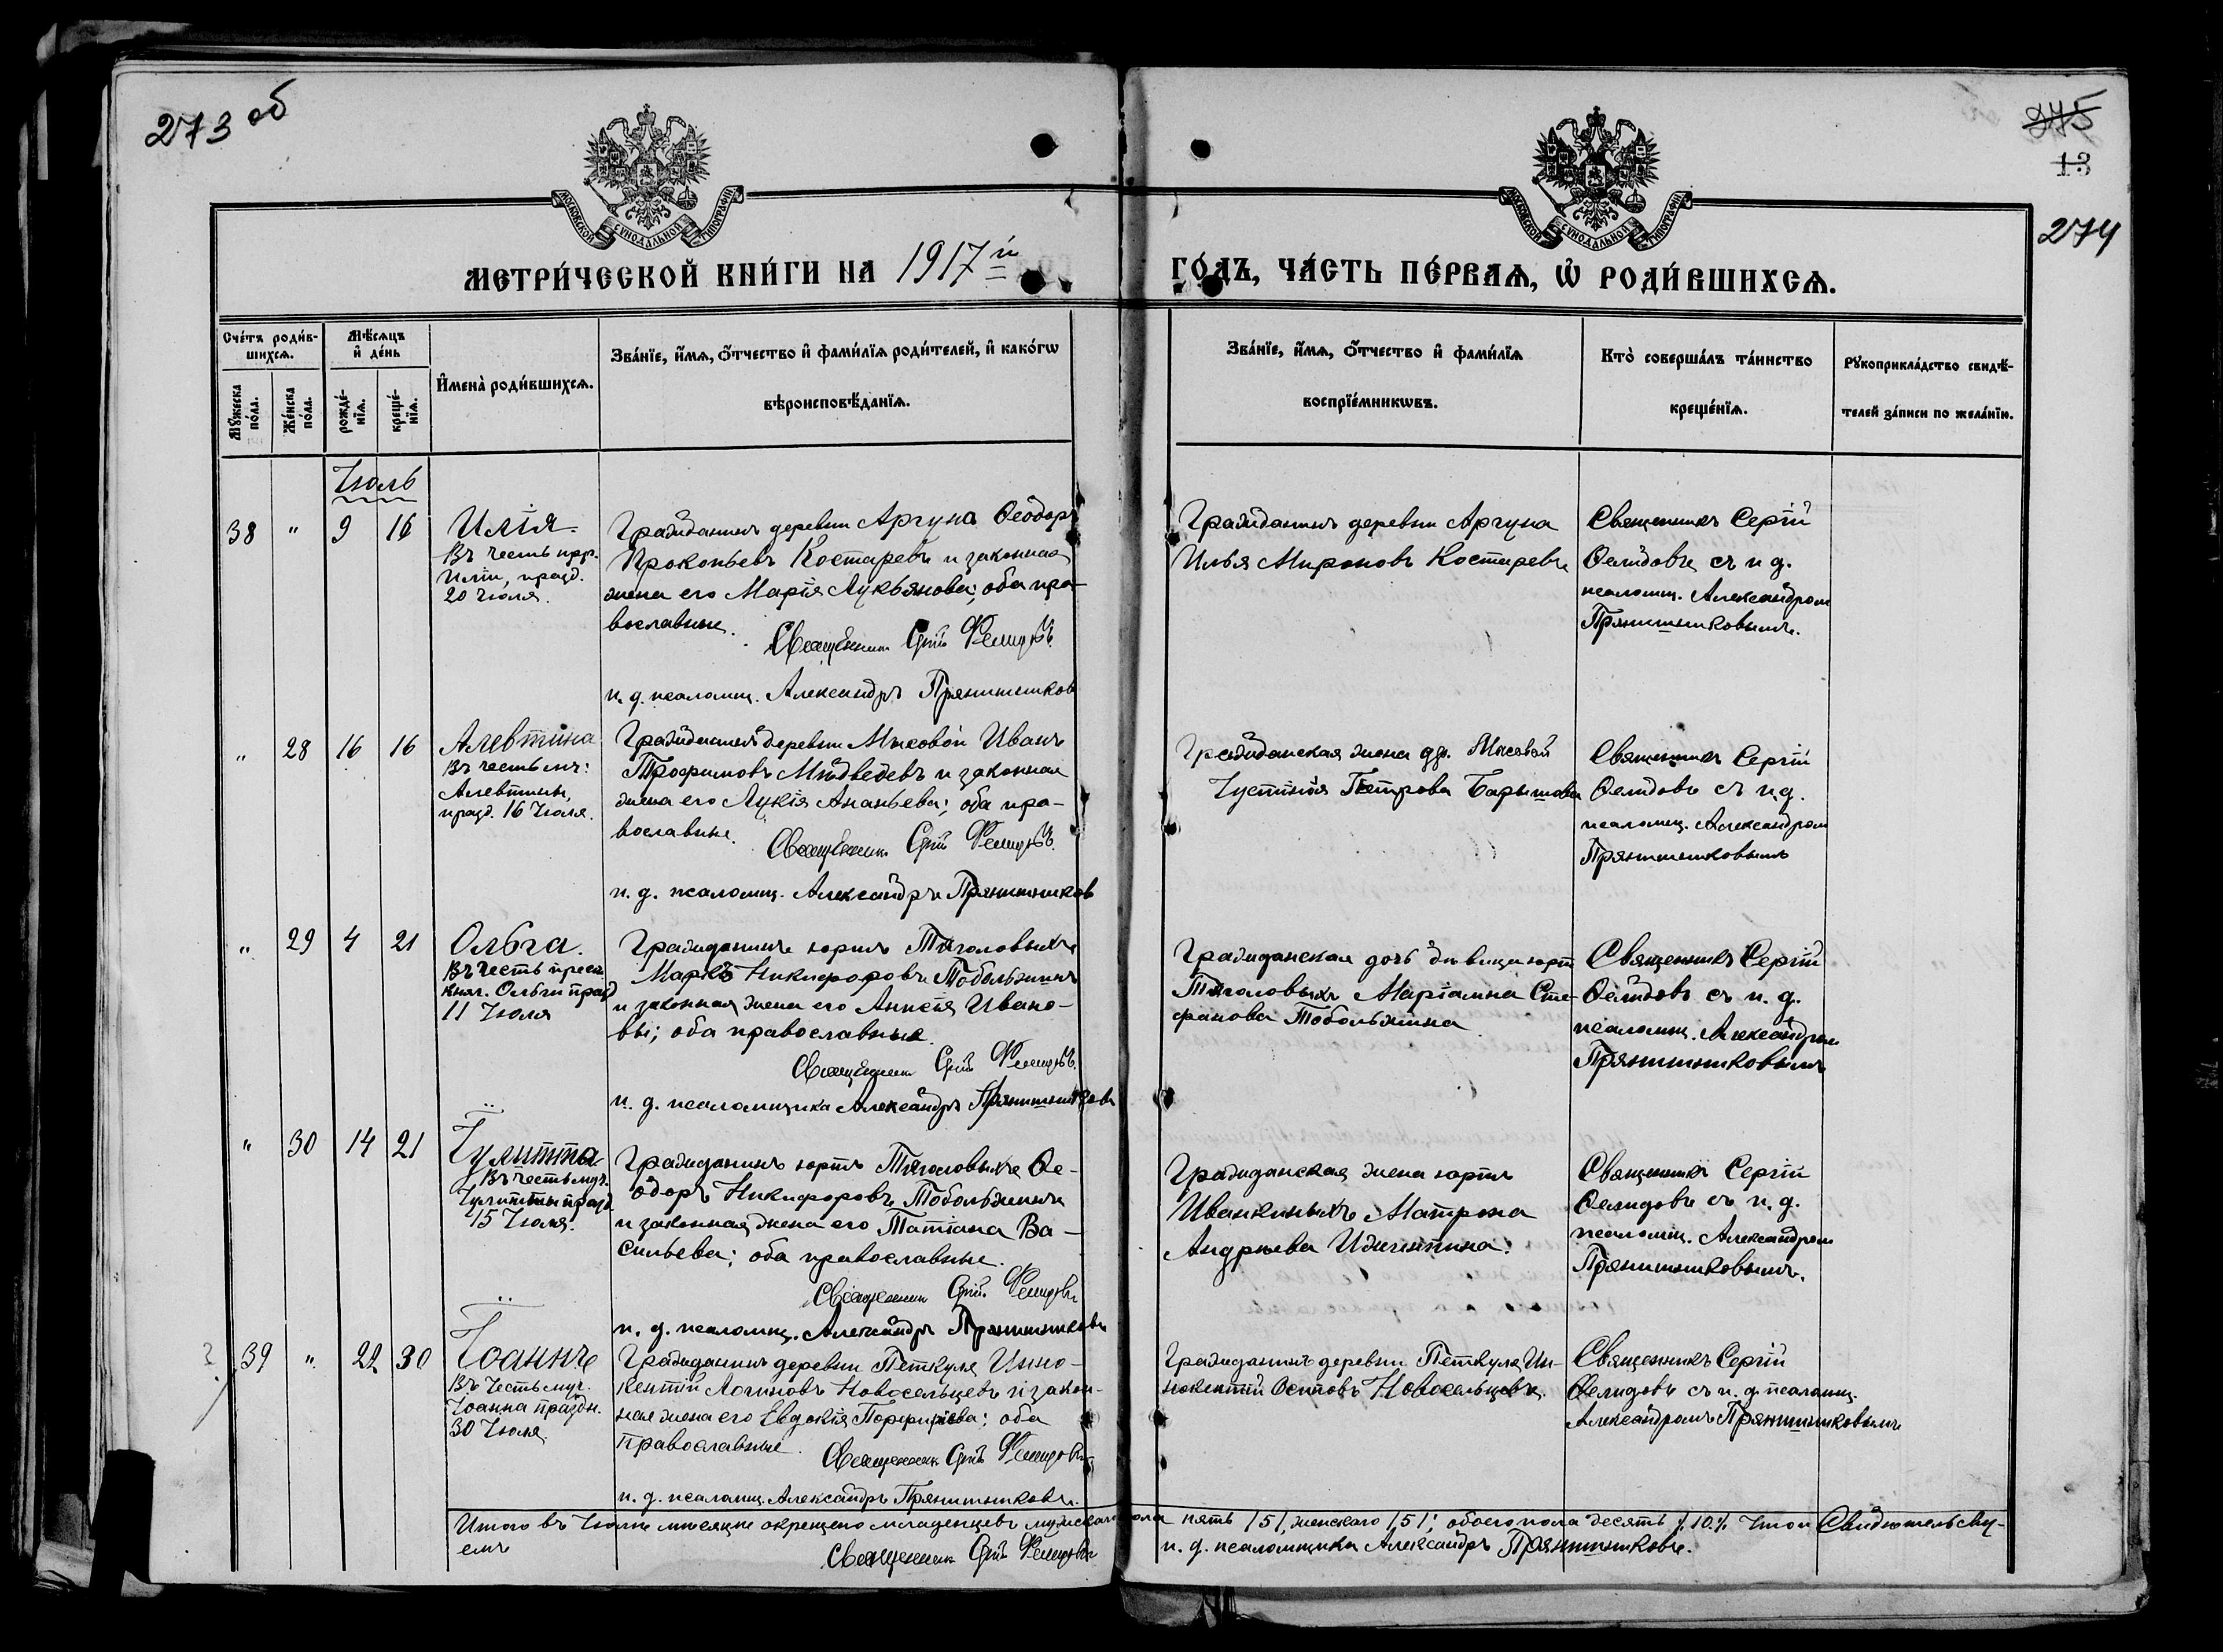 273 об
275
13
274
МОСКОВСКОЙ СѴНОДАЛЬНОЙ ТИПОГРАФІИ
МОСКОВСКОЙ СѴНОДАЛЬНОЙ ТИПОГРАФІИ
МЕТРИ́ЧЕСКОЙ КНИ́ГИ НА 1917й
ГО́ДЪ, ЧА́СТЬ ПЕ́РВАѦ, Ѡ҆ РОДИ́ВШИХСѦ.
Сче́тъ роди́в-
шихсѧ.
Мѣ́сѧцъ
и҆ де́нь
Мꙋ́жеска
по́ла.
Же́нска
по́ла.
рожде́-
нїѧ.
креще́-
нїѧ.
И҆мена̀ роди́вшихсѧ.
Зва́нїе, и҆́мѧ, ѻ҆́тчество и҆ фами́лїѧ роди́телей, и҆ како́гѡ
вѣроисповѣ́данїѧ.
Зва́нїе, и҆́мѧ, ѻ҆́тчество и҆ фами́лїѧ
воспрїе́мникѡвъ.
Кто̀ соверша́лъ та́инство
креще́нїѧ.
Рꙋкоприкла́дство свидѣ́-
телей за́писи по жела́нїю.
Іюль
38 " 9 16
Илія.
Въ честь прр.
Иліи, празд.
20 Іюля.
Гражданинъ деревни Аргуна Ѳеодоръ
Прокопьевъ Костаревъ и законная
жена его Марія Лукьянова; оба пра-
вославные.
Священникъ Сергій Фелидовъ
и. д. псаломщ. Александръ Прянишников
Гражданинъ деревни Аргуна
Илья Мироновъ Костаревъ
Священникъ Сергій
Ѳелидовъ съ и. д.
псаломщ. Александром
Прянишниковымъ.
" 28 16 16
Алевтина
Въ честь мч:
Алевтины,
празд. 16 Іюля.
Гражданинъ деревни Мысовой Иванъ
Трофимовъ Мѣдведевъ и законная
жена его Лукія Ананьева; оба пра-
вославные.
Священникъ Сергій Фелидовъ
и. д. псаломщ. Александръ Прянишников
Гражданская жена дер. Мысовой
Іустинія Петрова Барышева
Священникъ Сергій
Ѳелидовъ съ и. д.
псаломщ. Александром
Прянишниковымъ
" 29 4 21
Ольга.
Въ честь
княг. Ольги празд
11 Іюля
Гражданинъ юртъ Тяголовыхъ
Маркъ Никифоровъ Тобольжинъ
и законная жена его Анисія Ивано-
вы; оба православные.
Священникъ Сергій Фелидовъ
и. д. псаломщика Александръ Прянишниковъ
Гражданская дочь дѣвица юртъ
Тяголовыхъ Маріамна Сте-
фанова Тобольжина
Священникъ Сергій
Ѳелидовъ съ и. д.
псаломщ. Александром
Прянишниковымъ
" 30 14 21
Іулитта
Въ честь муч.
Іулитты празд.
15 Іюля.
Гражданинъ юртъ Тяголовыхъ Ѳе-
одоръ Никифоровъ Тобольжинъ
и законная жена его Татіана Ва-
сильева; оба православные.
Священникъ Сергій Фелидовъ
и. д. псаломщ. Александръ Прянишниковъ
Гражданская жена юртъ
Иванкиныхъ Матрона
Андреева
Священникъ Сергій
Ѳелидовъ съ и. д.
псаломщ. Александром
Прянишниковымъ.
39 " 22 30
Іоаннъ
Въ честь муч.
Іоанна праздн.
30 Іюля
Гражданинъ деревни Петкуля Инно-
кентій Логиновъ Новосельцевъ и закон-
ная жена его Евдокія Порфирьева; оба
православные.
Священникъ Сергій Фелидовъ
и. д. псаломщ. Александръ Прянишниковъ.
Гражданинъ деревни Петкуля Ин-
нокентій Осиповъ Новосельцевъ.
Священникъ Сергій
Ѳелидовъ съ и. д. псаломщ.
Александромъ Прянишниковымъ
Итого въ Іюлѣ мѣсяцѣ окрещено младенцевъ мужскаго пола пять /5/, женскаго /5/; обоего пола десять /10/. Свидѣтельству-
емъ
Священникъ Сергій Фелидовъ
и. д. псаломщика Александръ Прянишниковъ.